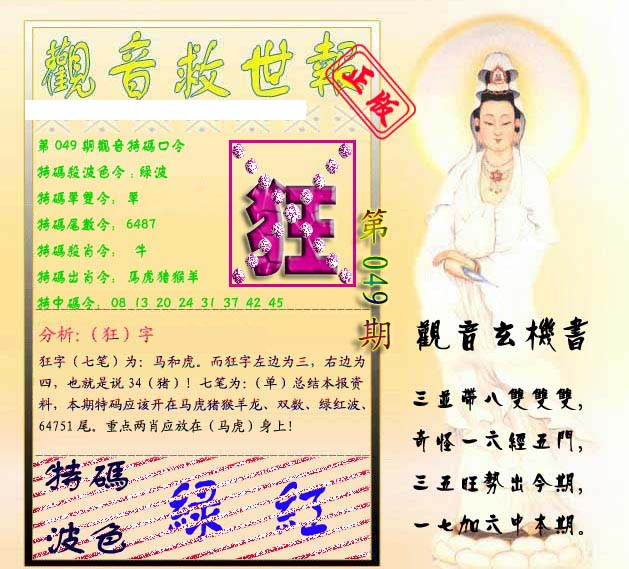 觀音救世報
正版
第 049 期觀音特碼口令
特碼殺波色令：綠波
特碼單雙令： 單
特碼尾數令： 6487
特碼殺肖令： 牛
特碼出肖令： 馬虎猪猴羊
特中碼令： 08 13 20 24 31 37 42 45
狂
第 049 期
分析:（狂）字
狂字（七笔）为：马和虎。而狂字左边为三，右边为
四，也就是说 34（猪）！七笔为：（单）总结本报资
料，本期特码应该开在马虎猪猴羊龙、双数、绿红波、
64751 尾。重点两肖应放在（马虎）身上!
特碼
波色
綠 紅
觀音玄機書
三並帶八雙雙雙，
奇怪一六經五門，
三五旺勢出今期，
一七加六中本期。